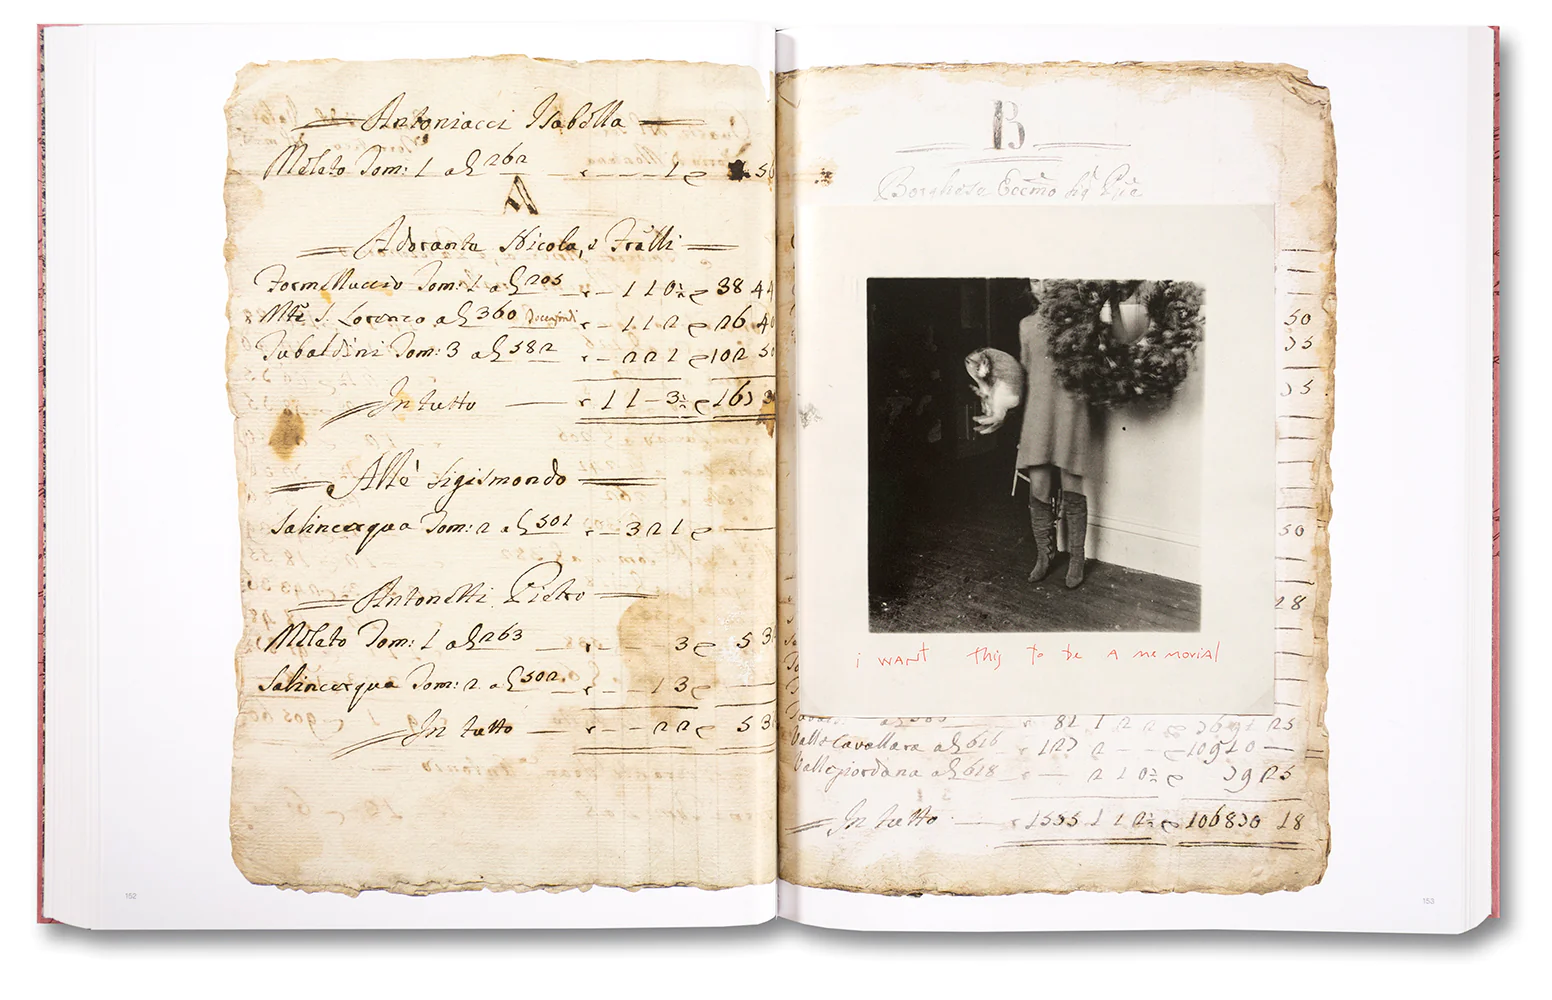 Antoniacci Isabella
Melato Tom: 1 a S 262 1 50
A
Adoranta Nicola, e Fralli
Tom: 1 a S 205 110 38 44
S. Lorenzo a S 360 112 26 40
Tubaldini Tom: 3 a S 582 221 102 50
In tutto 11-3 163
Allè Sigismondo
Salincerqua Tom: 2 a S 501 321
Antonetti Pietro
Melato Tom: 1 a S 263 3 53
Salincerqua Tom: 2 a S 502 13
In tutto 22 53
152
B
Borghese Eccmo Sig
50
35
35
50
28
i want this to be a memorial
82 1 2 2 25
Vallecavallara a S 616 123 2 10920
Vallegiordana a S 618 2 10 39 25
In tutto 1535 1 1 2 106830 18
153